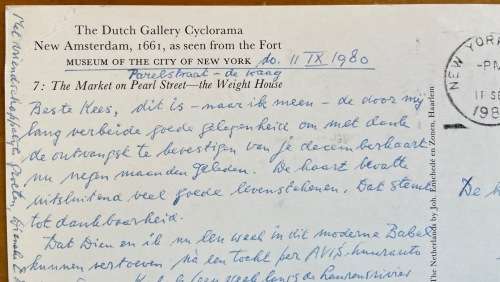 The Dutch Gallery Cyclorama
New Amsterdam, 1661, as seen from the Fort
MUSEUM OF THE CITY OF NEW YORK do. 11 IX 1980
Parelstraat - de waag
7: The Market on Pearl Street—the Weight House
Beste Kees, dit is - naar ik meen - de door mij
lang verbeide goede gelegenheid om met dank
de ontvangst te bevestigen van je decemberkaart
nu negen maanden geleden. De kaart bevatte
uitsluitend veel goede levenstekenen. Dat stemt
tot dankbaarheid.
Dat Dien en ik nu een week in dit moderne Babel
kunnen vertoeven na een tocht per AVIS-huurauto
een week langs de
Met vriendschappelijke groeten,
NEW YORK
PM
11 SE
198
The Netherlands by Joh. Enschedé en Zonen, Haarlem
De